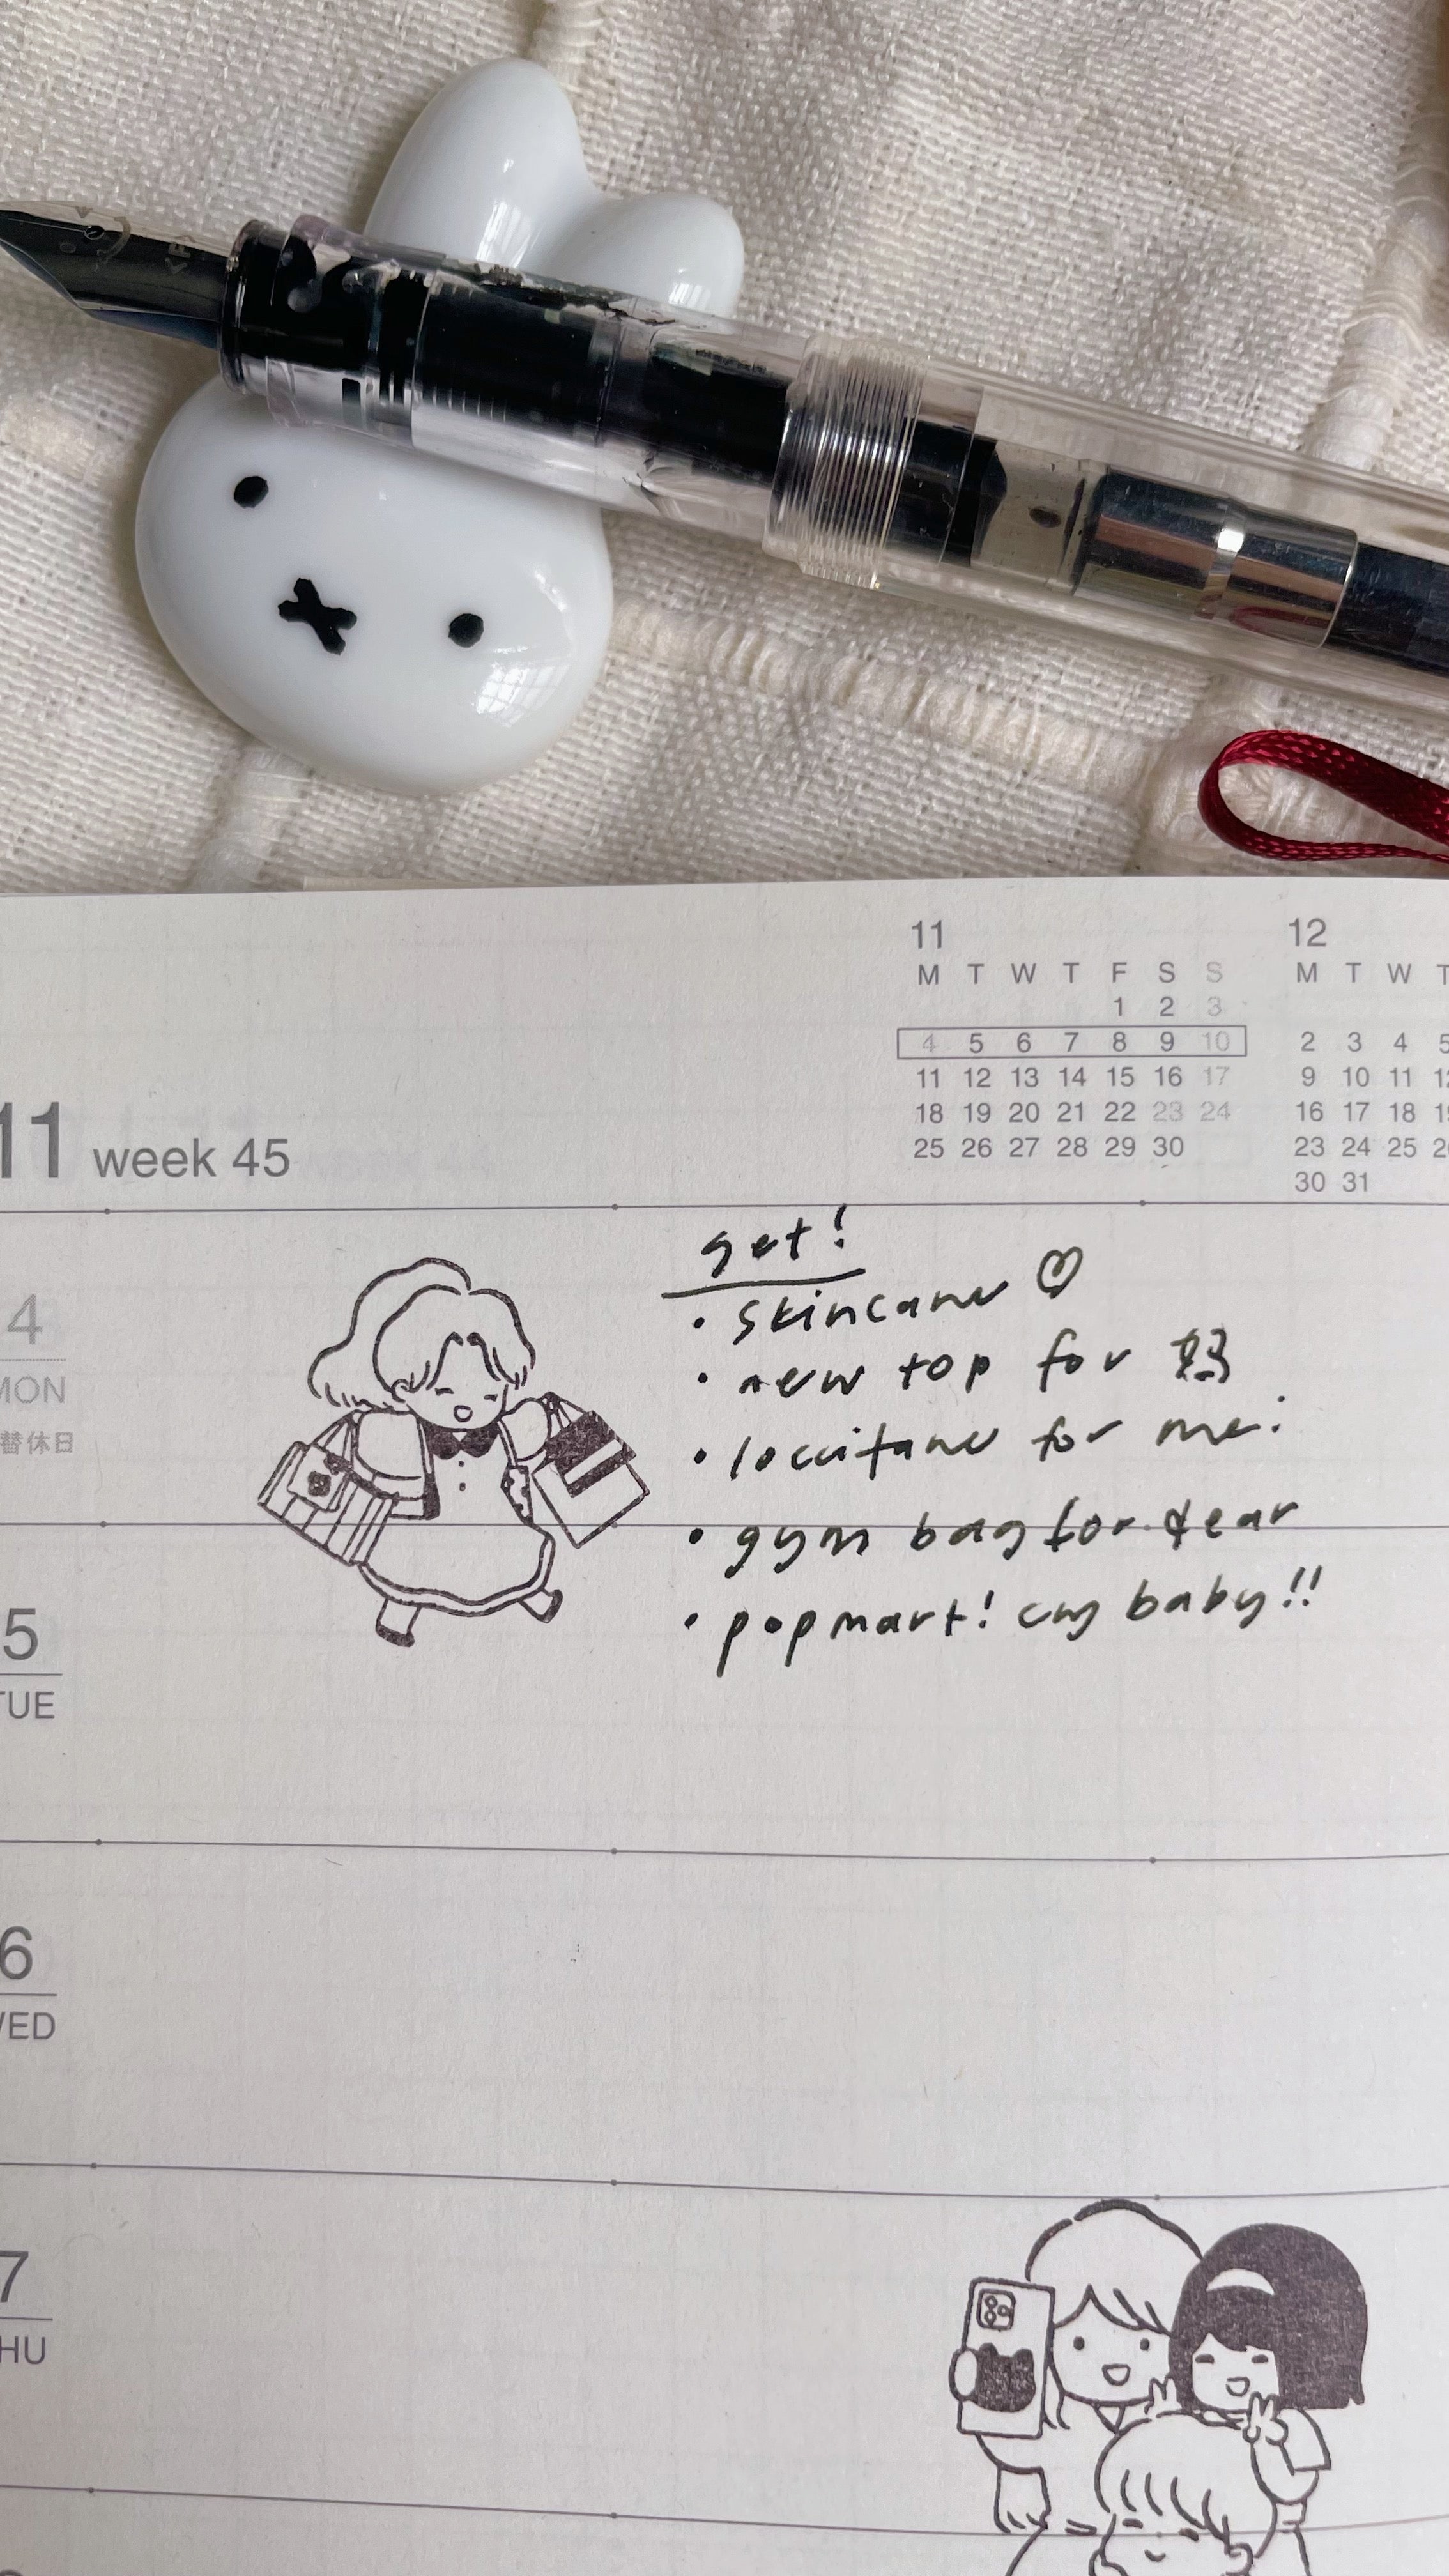 <F>
11
M T W T F S S
1 2 3
4 5 6 7 8 9 10
11 12 13 14 15 16 17
18 19 20 21 22 23 24
25 26 27 28 29 30
12
M T W T
2 3 4 5
9 10 11 12
16 17 18 19
23 24 25 26
30 31
11 week 45
4
MON
替休日
get!
• skincare ♡
• new top for
• loccitane for me!
• gym bag for dear
• popmart! cry baby!!
5
TUE
6
WED
7
THU